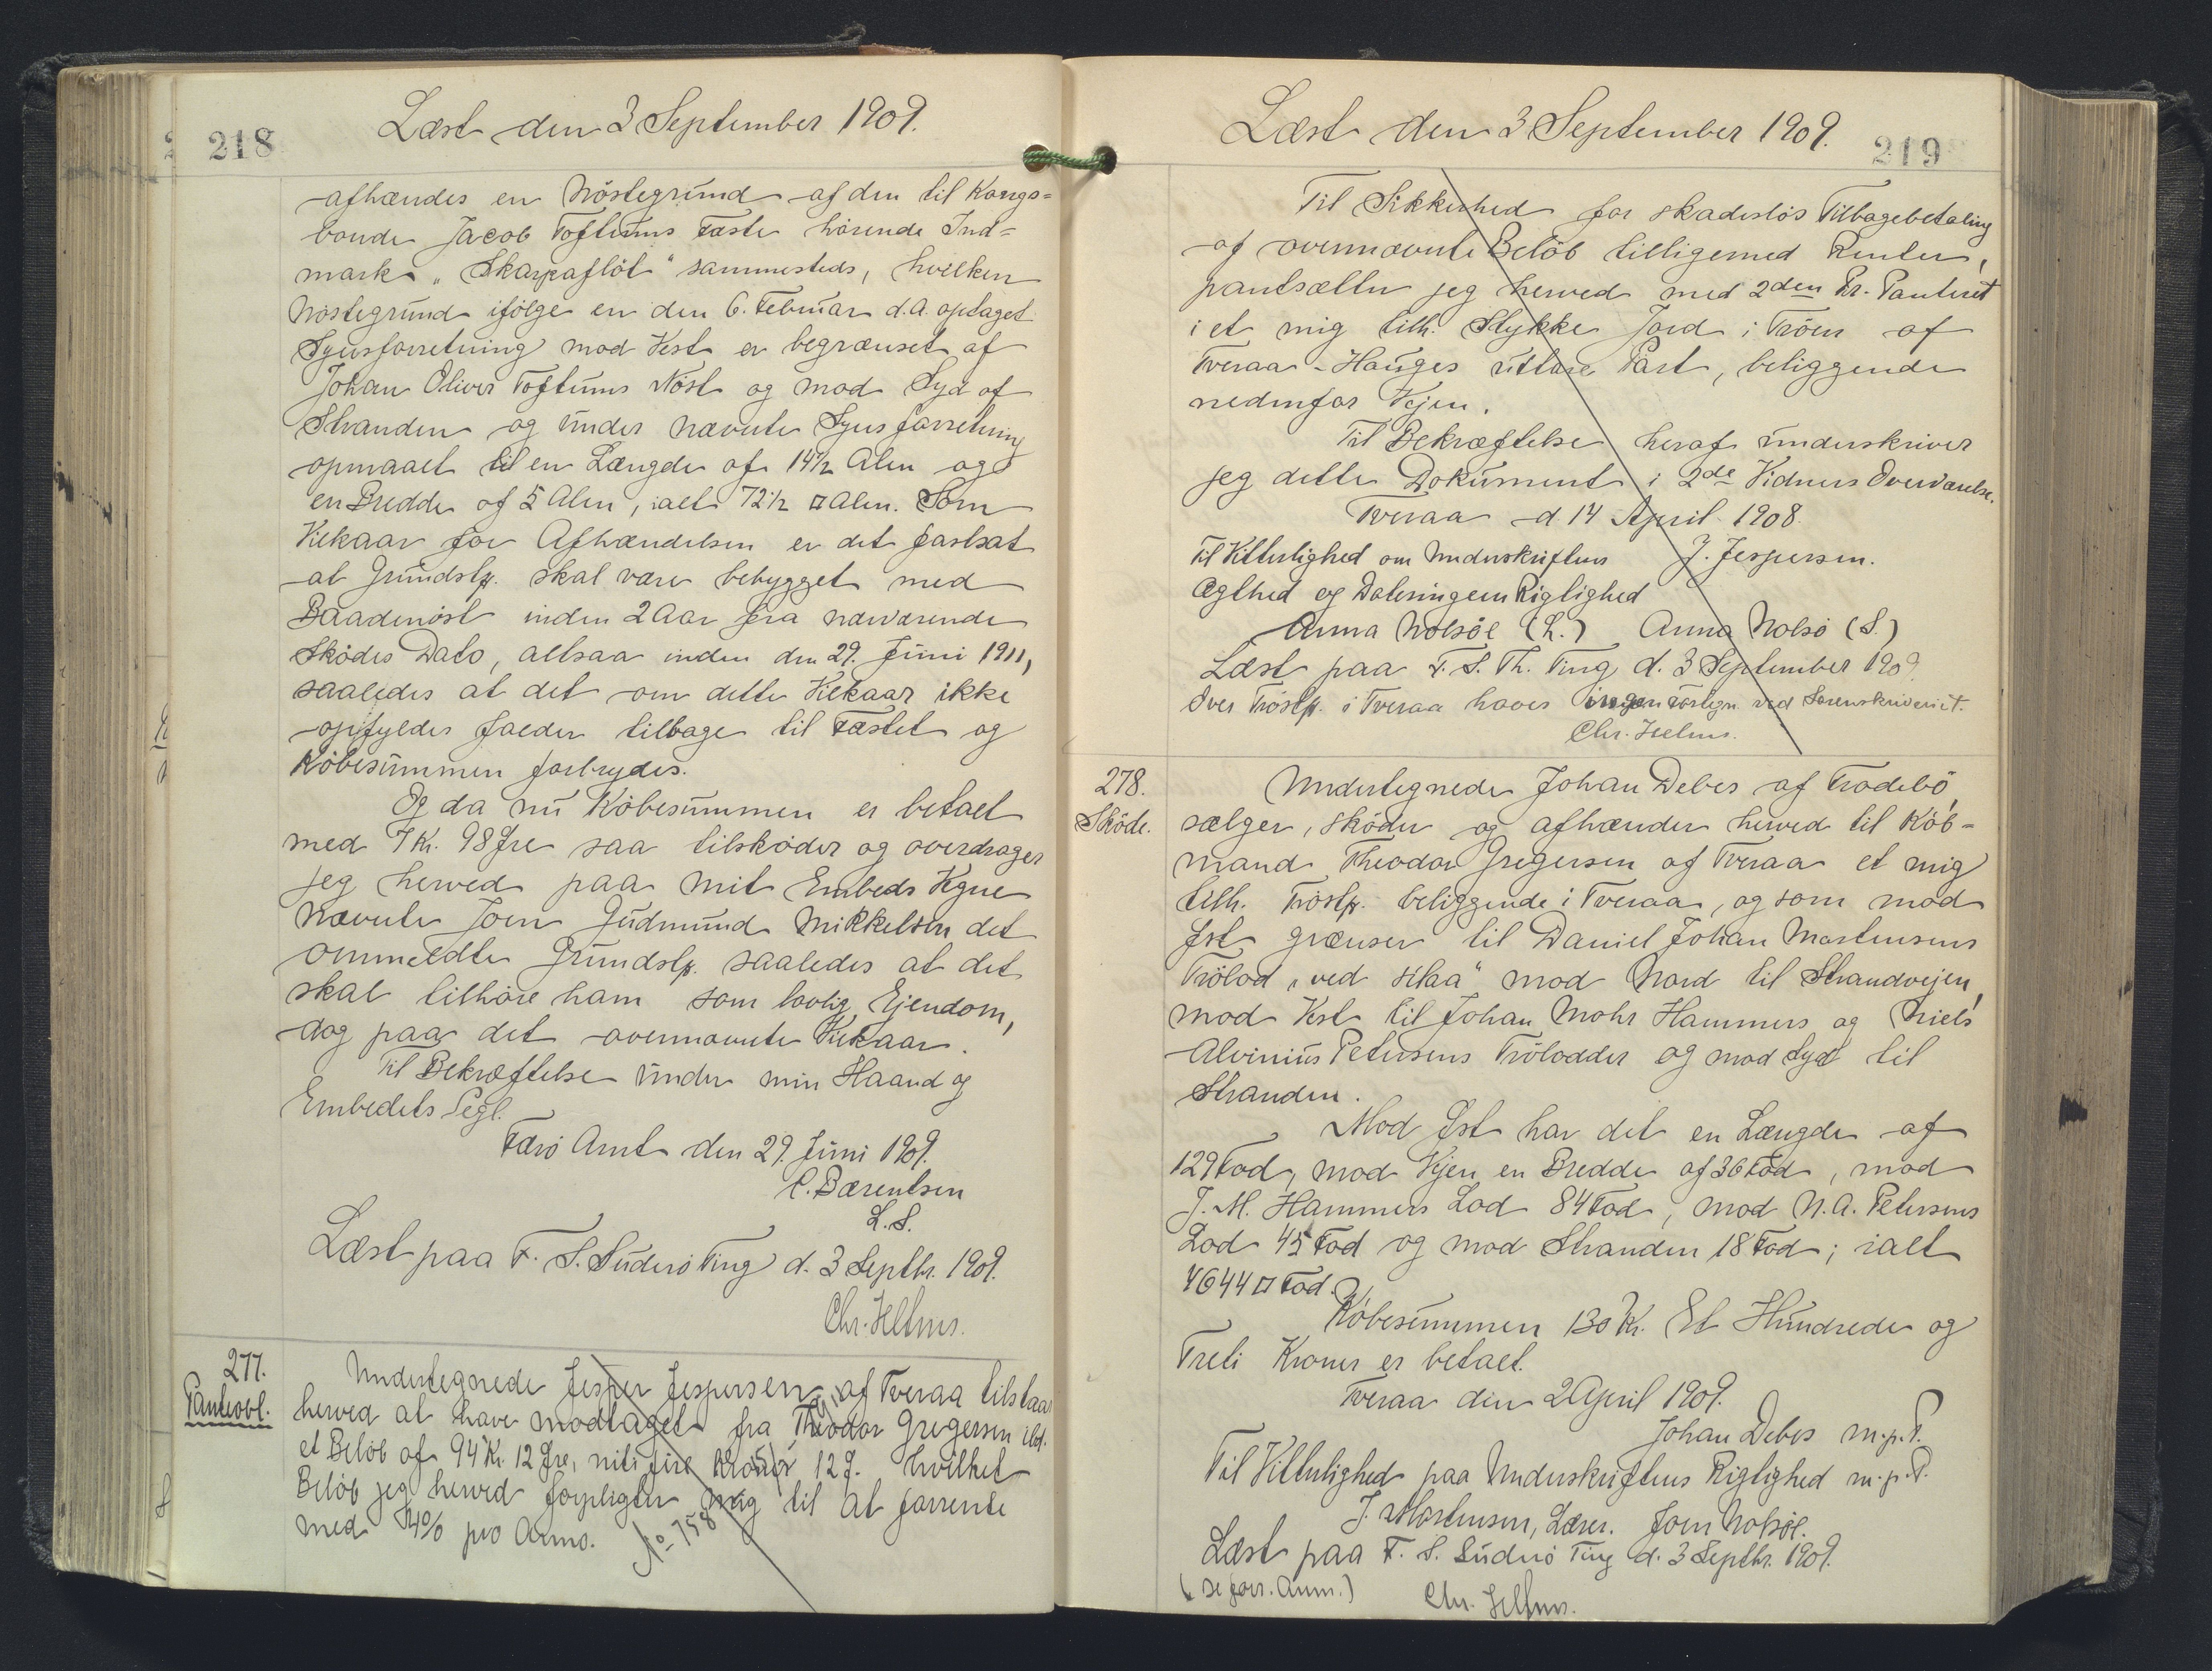 218
Læst den 3 September 1909.
afhændes en Nöstegrund af den til Kongs=
bonde Jacob Toftums Fæste hörende Ind=
mark „Skarpaflöt“ sammesteds, hvilken
Nöstegrund ifölge en den 6. Februar d.A. optaget
Synsforretning mod Vest er begrænset af
Johan Oliver Toftums Nöst og mod Syd af
Stranden og under nævnte Synsforretning
opmaalt til en Længde af 14½ Alen og
en Bredde af 5 Alen, ialt 72½ □ Alen. Som
Vilkaar for Afhændelsen er det fastsat
at Grundstk. skal være bebygget med
Baadenöst inden 2 Aar fra nærværende
Sködes Dato, altsaa inden den 29. Juni 1911,
saaledes at det om dette Vilkaar ikke
opfyldes falder tilbage til Fæstet og
Köbesummen forbrydes.
Og da nu Köbesummen er betalt
med 7 Kr. 98 Øre saa tilsköder og overdrager
jeg herved paa mit Embeds Vegne
nævnte Joen Gudmund Mikkelsen det
ommeldte Grundstk. saaledes at det
skal tilhöre ham som lovlig Ejendom,
dog paa det ovennævnte Vilkaar.
Til Bekræftelse under min Haand og
Embedets Segl.
Færö Amt den 29. Juni 1909.
C. Bærentsen
L.S.
Læst paa F. S. Suderö Ting d. 3 Septbr. 1909.
Chr. Helms.
277.
Panteobl.
Undertegnede Jesper Jespersen af Tveraa tilstaar
herved at have modtaget fra Theodor Gregersen ibd.
et Belöb af 94 Kr. 12 Øre, niti fire Kroner 12 Ø. hvilket
Belöb jeg herved forpligter mig til at forrente
med 4% pro Anno.
No 758
Læst den 3 September 1909.
219
Til Sikkerhed for skadeslös Tilbagebetaling
af ovennævnte Belöb tilligemed Renter,
pantsætter jeg herved med 2den Pr. Panteret
i et mig tilh. Stykke Jord i Tröen af
Tveaa-Hauges uttare Part, beliggende
nedenfor Vejen.
Til Bekræftelse heraf underskriver
jeg dette Dokument i 2de Vidners Overværelse.
Tveraa d 14 April 1908.
Til Vitterlighed om Underskriftens J. Jespersen.
Ægthed og Dateringens Rigtighed
Anna Nolsöe (L.) Anna Nolsö (S.)
Læst paa F. S. Th. Ting d. 3 September 1909
Over Tröstk. i Tveraa haves ingen Fortegn. ved Sorenskriveriet.
Chr. Helms.
278.
Sköde.
Undertegnede Johan Debes af Frodebö
sælger, sköder og afhænder herved til Köb=
mand Theodor Gregersen af Tveraa et mig
tilh. Tröstk. beliggende i Tveraa, og som mod
Øst grænser til Daniel Johan Mortensens
Trölod „ved Silaa“ mod Nord til Strandvejen,
mod Vest til Johan Mohr Hammers og Niels
Alvinius Petersens Trölodder og mod Syd til
Stranden.
Mod Øst har det en Længde af
129 Fod, mod Vejen en Bredde af 36 Fod, mod
J. M. Hammers Lod 84 Fod, mod N. A. Petersens
Lod 45 Fod og mod Stranden 18 Fod; ialt
4644 □ Fod.
Köbesummen 130 Kr. Et Hundrede og
Treti Kroner er betalt.
Tveraa den 2 April 1909.
Johan Debes m.p.P.
Til Vitterlighed paa Underskriftens Rigtighed m.p.P.
J. Mortensen, Lærer. Joen Nolsöe.
Læst paa F. S. Suderö Ting d. 3 Septbr. 1909.
(se forr. Anm.) Chr. Helms.